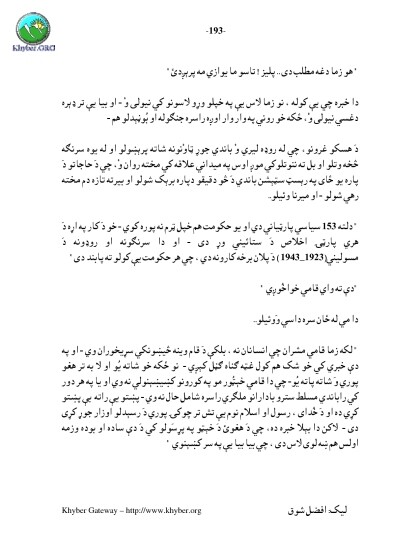 -193-
Khyber.ORG
"هو زما دغه مطلب دی.. پلیز ! تاسو ما یوازې مه پرېږدئ "
دا خبره چي یې کوله ، نو زما لاس یې په خپلو وړو لاسونو کي نیولی وُ - او بیا یې تر ډېره
دغسي نیولی وُ، ځکه خو روني په وار وار اوږه راسره جنګوله او ښُوېدلو هم -
دَ هسکو غرونو ، چي له روډه لیري وُ باندي جوړ ټاوُنونه شاته پرېښولو او له یوه سرنګه
ځخه وتلو او بل ته ننوتلو کي موږ اوس په میداني علاقه کي مخته روان وُ ، چي دَ حاجاتو دَ
پاره یو ځای په ریسټ سټېشن باندي دَ څو دقیقو دپاره بریک شولو او بیرته تازه دم مخته
رهي شولو - او میرنا وئیلو..
"دلته 153 سیاسي پارټیاني دي او یو حکومت هم خپل ټرم نه پوره کوي - خو دَ کار په اړه دَ
هري پارټۍ اخلاص دَ ستائیني وړ دی - او دا سرنګونه او روډونه دَ
مسوليني (1923_1943) دَ پلان برخه کارونه دي ، چي هر حکومت یې کولو ته پابند دی "
"دې ته وای قامي خواخُوږي "
دا مي له ځان سره داسي وَوئیلو..
"لکه زما قامي مشران چي انسانان نه ، بلکي دَ قام وینه څښونکي سږېخوران وي - او په
دې خبري کي خو شک هم کول غټه ګناه ګڼل کېږي - نو ځکه خو شاته یُو او لا به تر هغو
پوري دَ شاته پاته یُو - چي دا قامي خښُور مو په کورونو کښېښېنولي نه وي او یا په هر دور
کي راباندي مسلط سترو بادارانو ملګري راسره شامل حال نه وي - پښتو یې راته یې پښتو
کړې ده او دَ خُدای ، رسول او اسلام نوم یې تش تر چوکۍ پوري دَ رسېدلو اوزار جوړ کړی
دی - لاکن دا بېلا خبره ده، چي دَ هغوئ دَ خېټو په پړسولو کي دَ دې ساده او بوده وزمه
اولس هم ښه لوی لاس دی ، چي بیا بیا یې په سر کښېنوي "
Khyber Gateway – http://www.khyber.org
لیک: افضل شوق